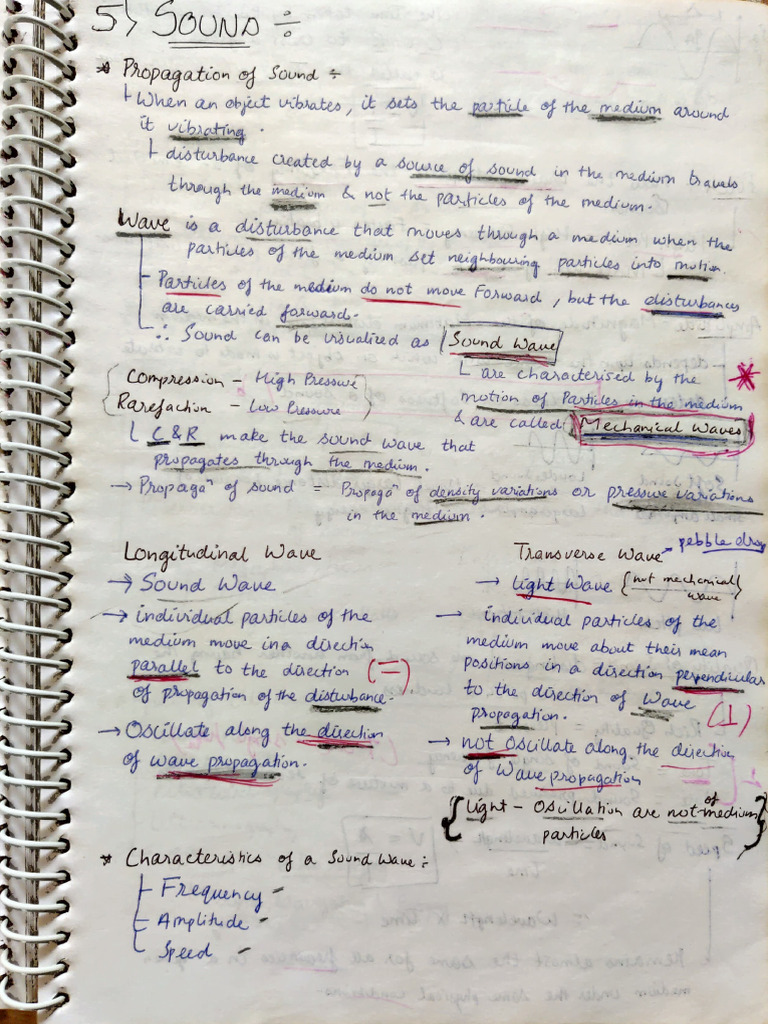 5) SOUND ÷
* Propagation of Sound ÷
When an object vibrates, it sets the particle of the medium around
it vibrating.
disturbance created by a source of sound in the medium travels
through the medium & not the particles of the medium.
Wave is a disturbance that moves through a medium when the
particles of the medium set neighbouring particles into motion.
Particles of the medium do not move Forward, but the disturbances
are carried forward.
∴ Sound can be visualized as Sound Wave
are characterised by the
motion of Particles in the medium
& are called Mechanical Waves
*
Compression - High Pressure
Rarefaction - Low Pressure
C & R make the sound wave that
propagates through the medium.
→ Propagaⁿ of sound = Propagaⁿ of density variations or pressure variations
in the medium.
Longitudinal Wave
→ Sound Wave
→ individual particles of the
medium move in a direction
parallel to the direction (=)
of propagation of the disturbance.
→ Oscillate along the direction
of wave propagation.
Transverse Wave → pebble drop
→ light Wave {not mechanical
wave}
→ individual particles of the
medium move about their mean
positions in a direction perpendicular
to the direction of Wave (⊥)
propagation.
→ not Oscillate along the direction
of Wave propagation
{Light - Oscillation are not of medium
particles}
* Characteristics of a Sound Wave ÷
Frequency -
Amplitude -
Speed -